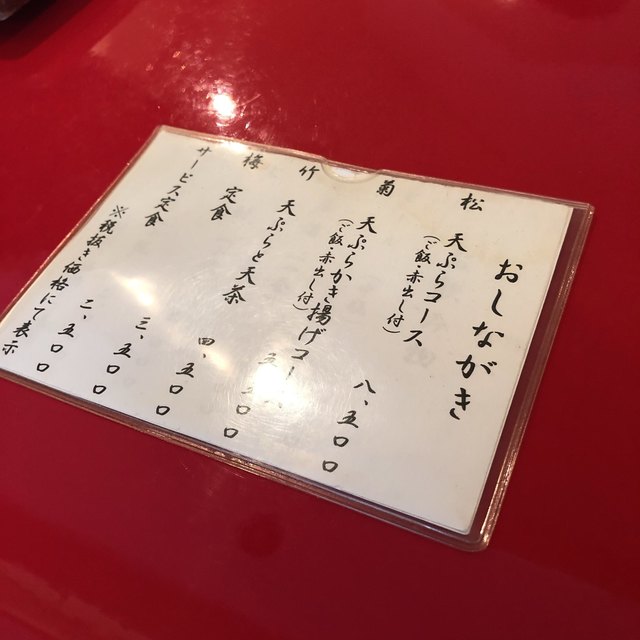 おしながき
松 天ぷらコース
(ご飯・赤出し付)
八、五〇〇
菊 天ぷらかき揚げコース
(ご飯・赤出し付)
五〇〇
竹 天ぷらと天茶
四、五〇〇
梅 定食
三、五〇〇
サービス定食
二、五〇〇
※税抜き価格にて表示